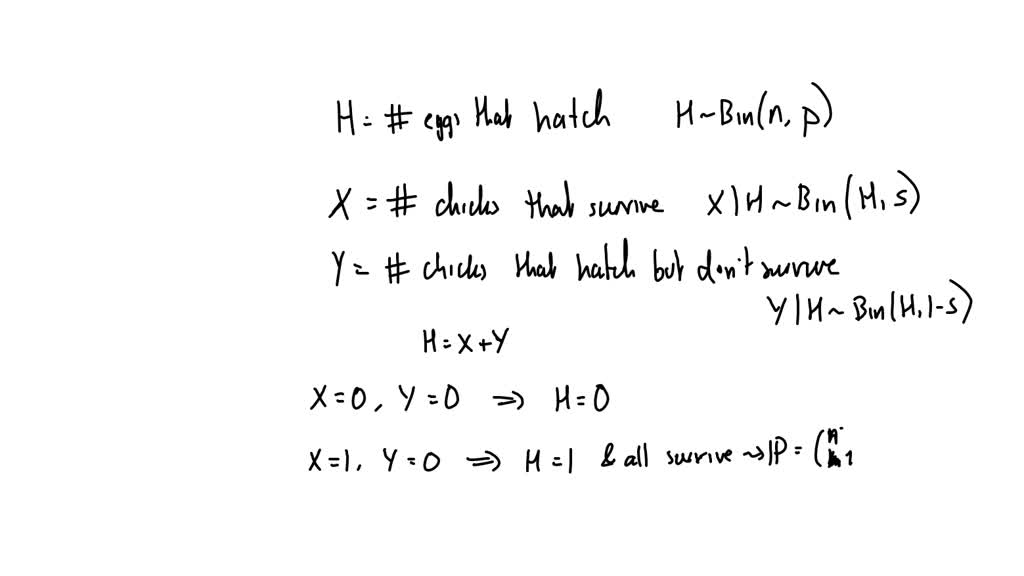 H = # eggs that hatch H ~ Bin(n, p)
X = # chicks that survive X | H ~ Bin(H, s)
Y = # chicks that hatch but don't survive
Y | H ~ Bin(H, 1-s)
H = X + Y
X = 0, Y = 0 ⇒ H = 0
X = 1, Y = 0 ⇒ H = 1 & all survive ⇝ ℙ = (n 1